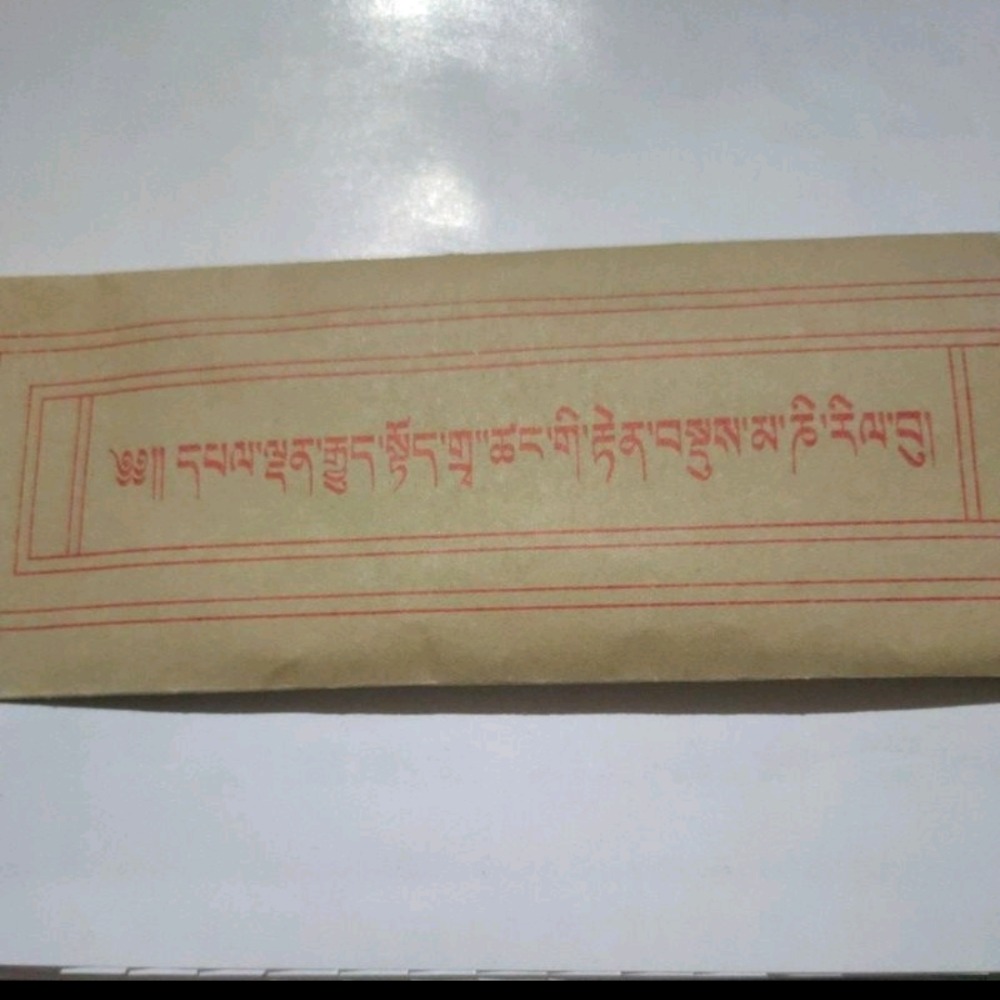 ༄༅།། དཔལ་ལྡན་རྒྱུད་སྟོད་གྲྭ་ཚང་གི་རྟེན་བསྡུས་མ་ཎི་རིལ་བུ།